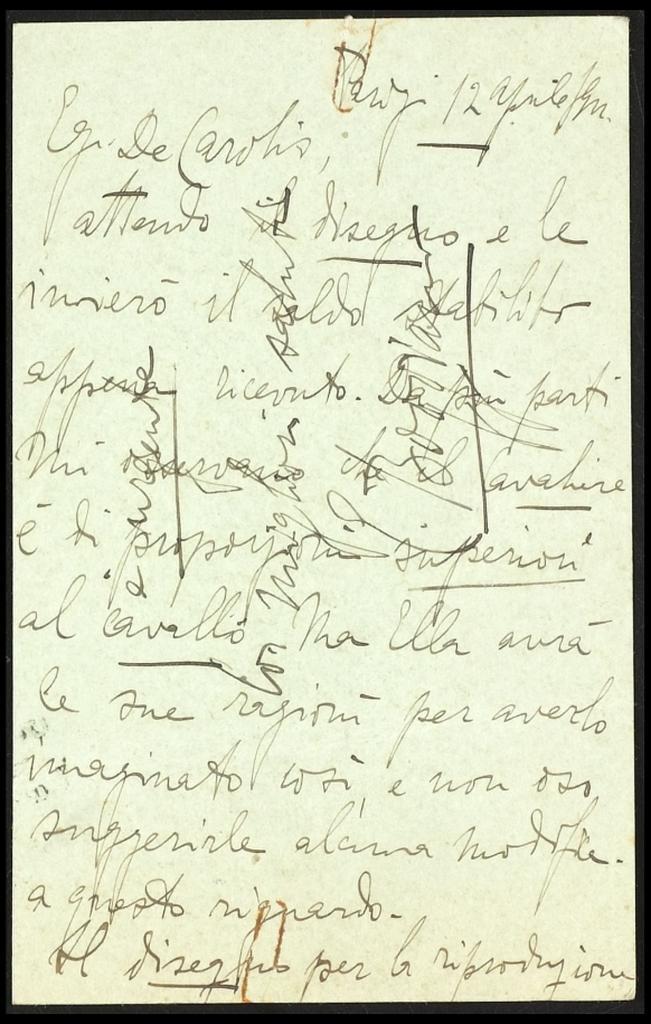 Parigi 12 aprile
Eg. De Carolis,
attendo il disegno e le
invierò il saldo stabilito
appena ricevuto. Da più parti
mi osservano che il Cavaliere
è di proporzioni superiori
al cavallo. Ma Ella avrà
le sue ragioni per averlo
imaginato così, e non oso
suggerirle alcuna modifica.
a questo riguardo.
Il disegno per la riproduzione
e urgente
Coi migliori saluti